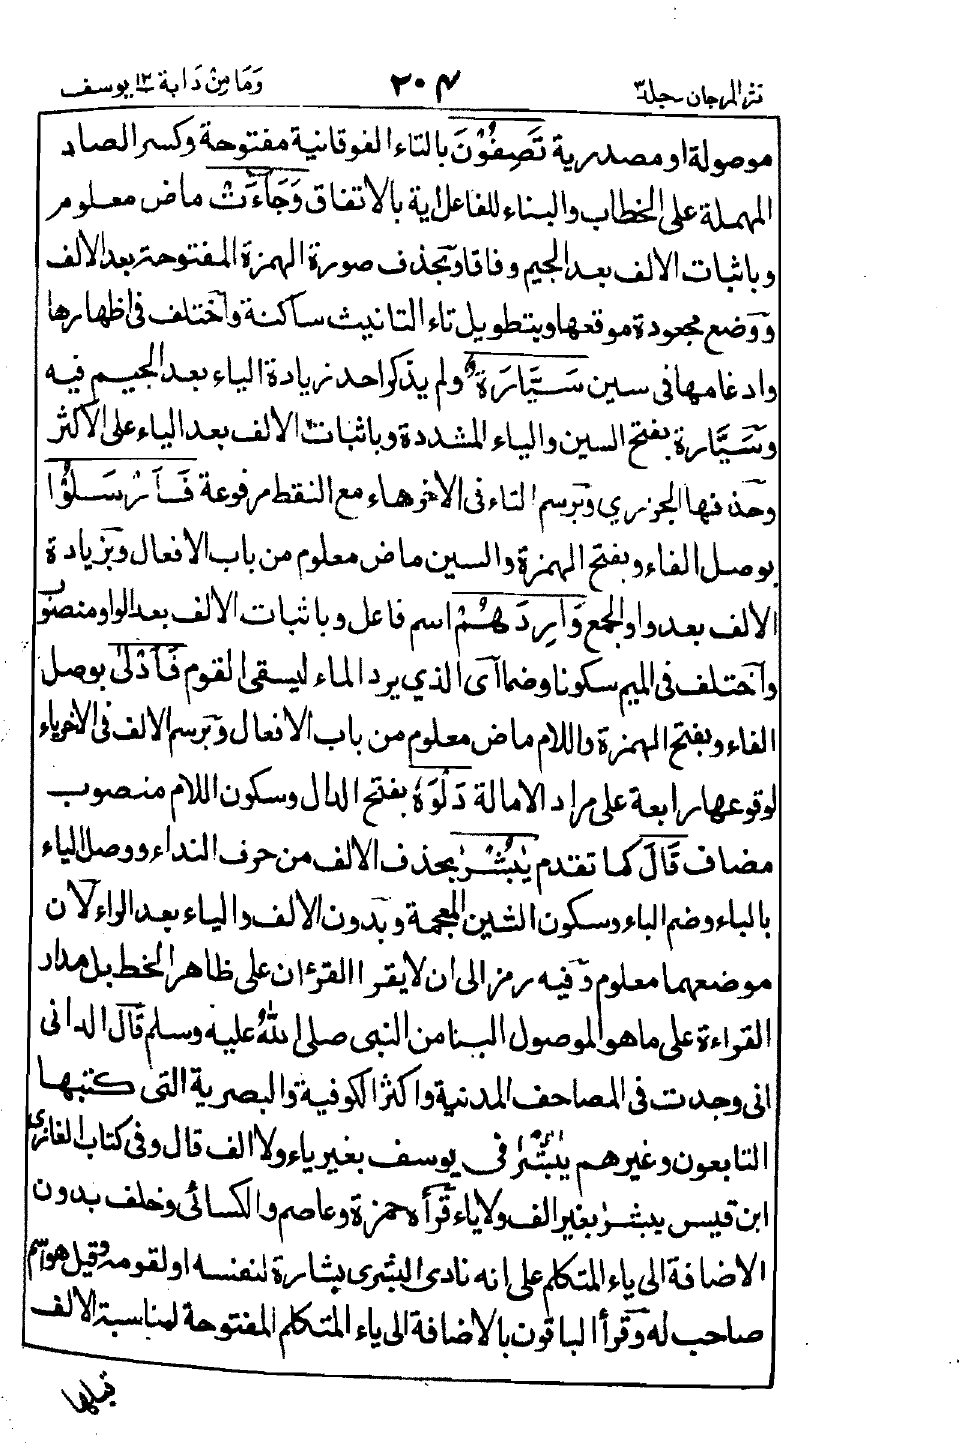 نثر المرجان جلد ٣ ٢٠٤ وَمَا مِنْ دَابة ١٢ يوسف
موصولة او مصدرية تَصِفُوْنَ بالتاء الفوقانية مفتوحة وكسر الصاد
المهملة على الخطاب والبناء للفاعل اية بالاتفاق وَجَآءَتْ ماض معلوم
وباثبات الالف بعد الجيم وفاقا وبحذف صورة الهمزة المفتوحة بعد الالف
ووضع مجعودة موقعها وبتطويل تاء التانيث ساكنة واختلف في اظهارها
وادغامها في سين سَيَّارَةٌ ولم يذكر احد زيادة الياء بعد الجيم فيه
وسَيَّارة بفتح السين والياء المشددة وباثبات الالف بعد الياء على الاكثر
وحذفها الجزري وبرسم التاء في الاخر هاء مع النقط مرفوعة فَاَرْسَلُوْا
بوصل الفاء وبفتح الهمزة والسين ماض معلوم من باب الافعال وبزيادة
الالف بعد واو الجمع وَارِدَهُمْ اسم فاعل وباثبات الالف بعد الواو منصوب
واختلف في الميم سكونا وضما اى الذي يرد الماء ليسقى القوم فَاَدْلٰى بوصل
الفاء وبفتح الهمزة واللام ماض معلوم من باب الافعال وبرسم الالف في الاخر ياء
لوقوعها رابعة على مراد الامالة دَلْوَهٗ بفتح الدال وسكون اللام منصوب
مضاف قَالَ كما تقدم يٰبُشْرٰ بحذف الالف من حرف النداء ووصل الياء
بالباء وضم الباء وسكون الشين المعجمة وبدون الالف والياء بعد الراء لان
موضعهما معلوم وفيه رمز الى ان لا يقرا القرءان على ظاهر الخط بل مدار
القراءة على ما هو الموصول الينا من النبى صلى الله عليه وسلم قال الدانى
انى وجدت في المصاحف المدنية واكثر الكوفية والبصرية التى كتبها
التابعون وغيرهم يٰبُشْرٰ في يوسف بغير ياء ولا الف قال وفى كتاب الغازى
ابن قيس يبشرٰ بغير الف ولا ياء قرأه حمزة وعاصم والكسائى وخلف بدون
الاضافة الى ياء المتكلم على انه نادى البشرى بشارة لنفسه او لقومه وقيل هو اسم
صاحب له وقرأ الباقون بالاضافة الى ياء المتكلم المفتوحة لمناسبة الالف
قبلها